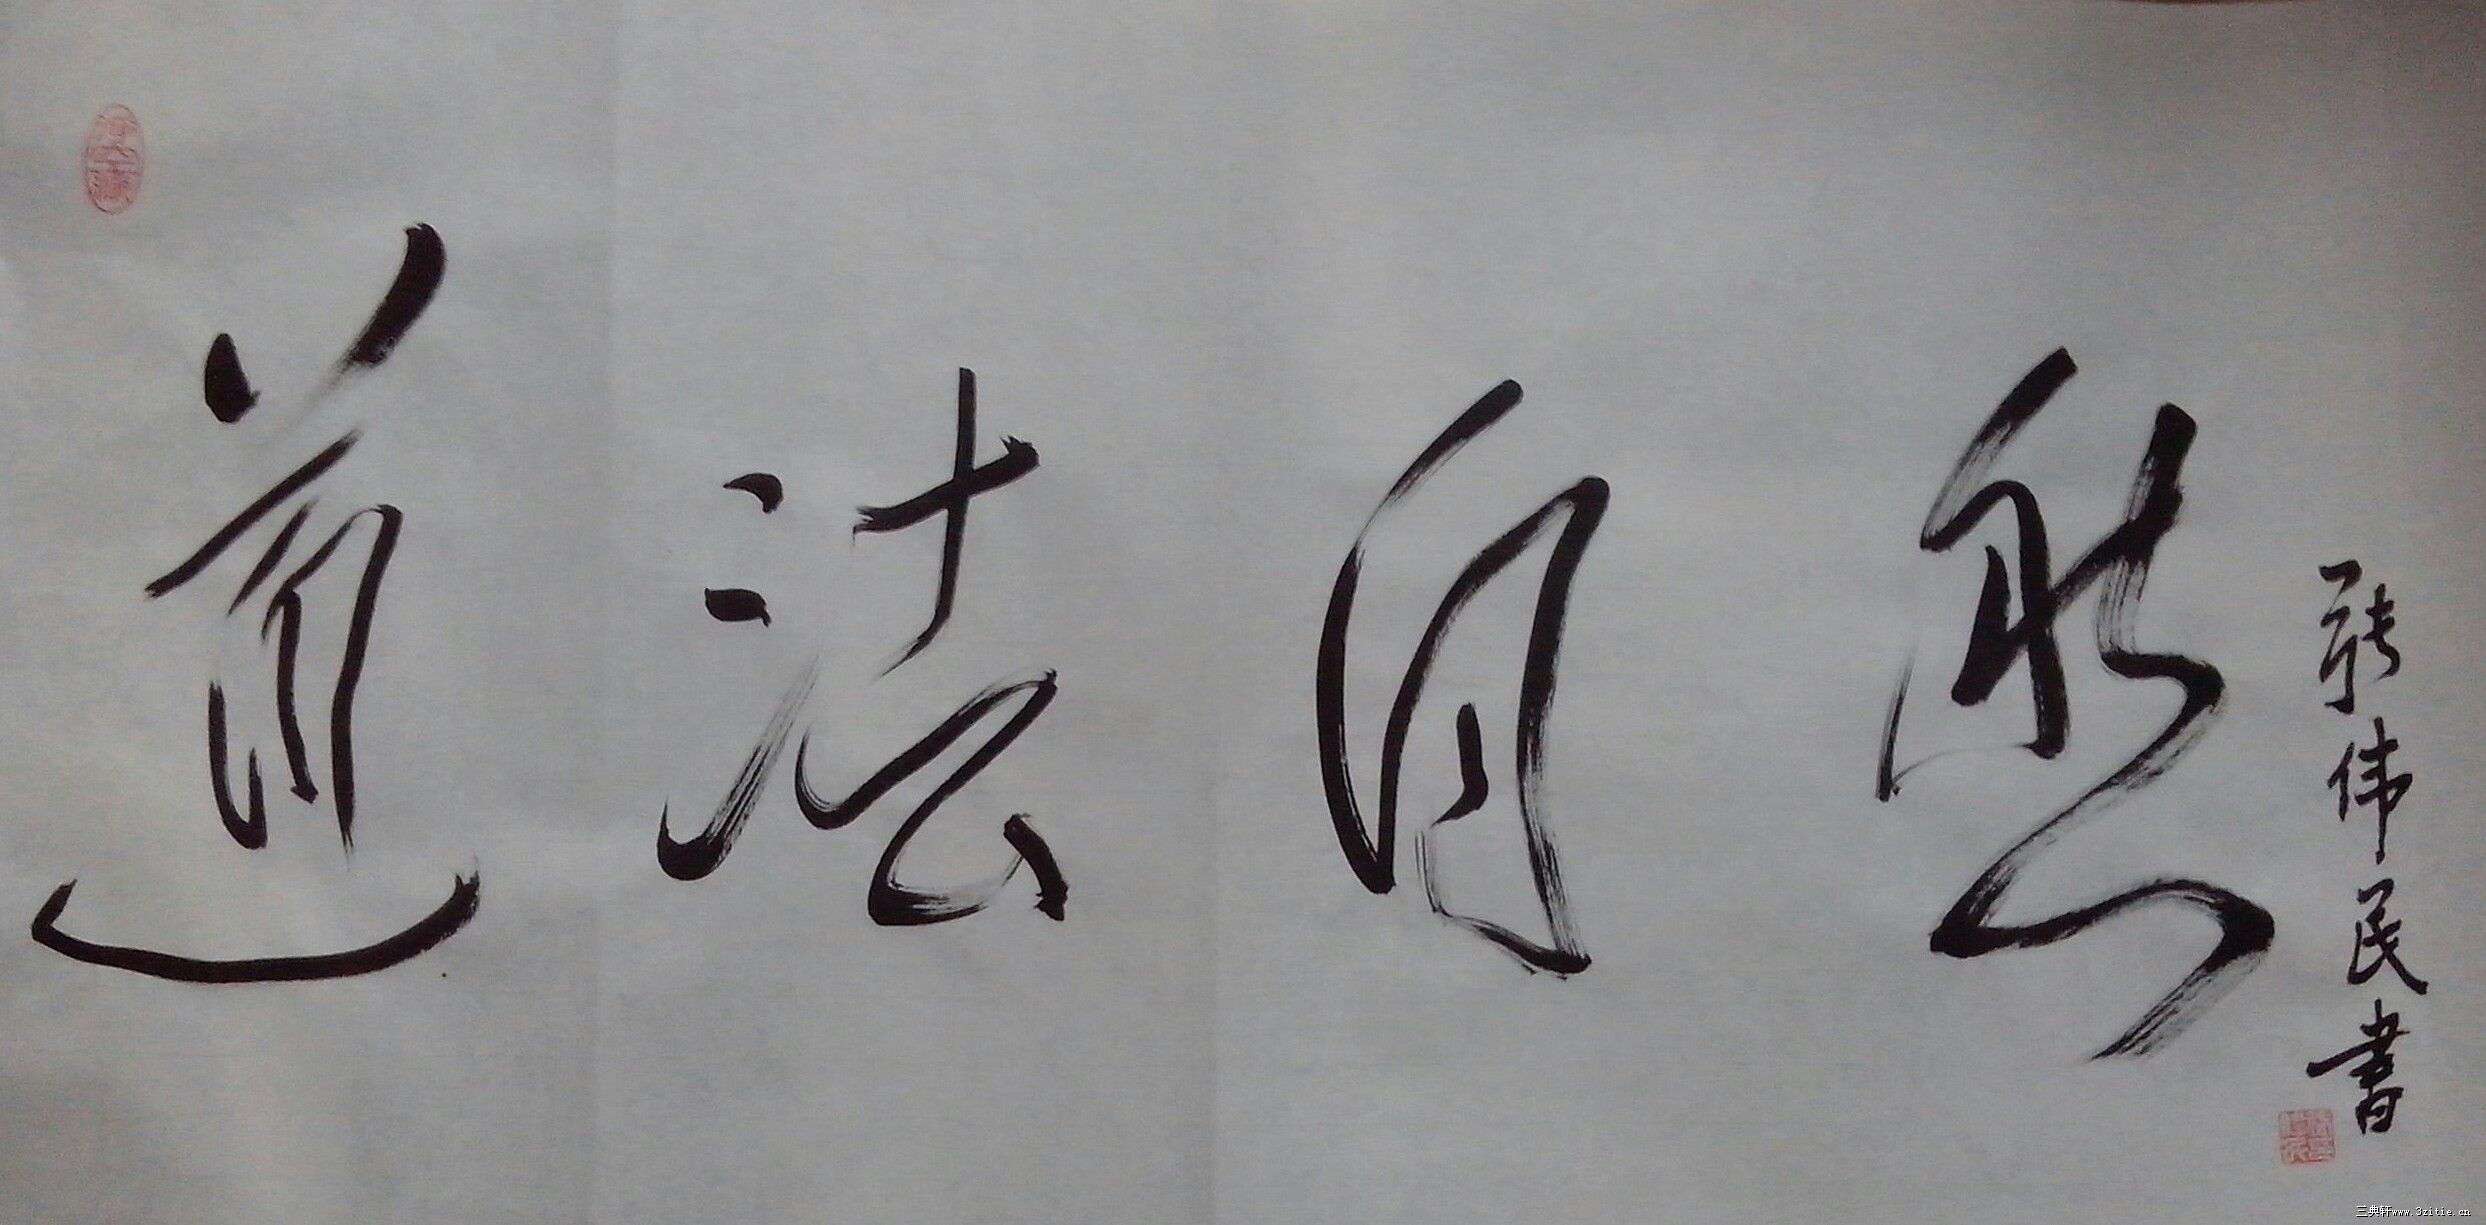 道法自然
张伟民書
三典轩www.3zitie.cn